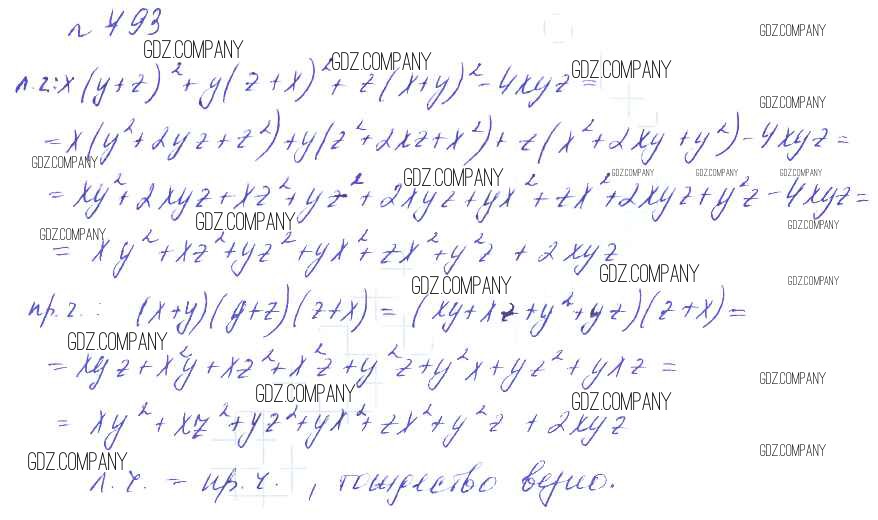 № 493
GDZ.COMPANY GDZ.COMPANY GDZ.COMPANY GDZ.COMPANY
л.ч: x(y+z)²+y(z+x)²+z(x+y)²-4xyz=
GDZ.COMPANY
=x(y²+2yz+z²)+y(z²+2xz+x²)+z(x²+2xy+y²)-4xyz=
GDZ.COMPANY GDZ.COMPANY GDZ.COMPANY GDZ.COMPANY GDZ.COMPANY
=xy²+2xyz+xz²+yz²+2xyz+yx²+zx²+2xyz+y²z-4xyz=
GDZ.COMPANY GDZ.COMPANY GDZ.COMPANY
=xy²+xz²+yz²+yx²+zx²+y²z+2xyz
GDZ.COMPANY GDZ.COMPANY GDZ.COMPANY
пр.ч.: (x+y)(y+z)(z+x)=(xy+xz+y²+yz)(z+x)=
GDZ.COMPANY
=xyz+x²y+xz²+x²z+y²z+y²x+yz²+yxz=
GDZ.COMPANY GDZ.COMPANY GDZ.COMPANY
=xy²+xz²+yz²+yx²+zx²+y²z+2xyz
GDZ.COMPANY GDZ.COMPANY
л.ч.=пр.ч., тождество верно.